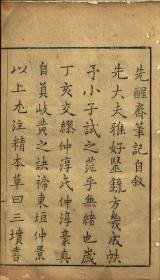 先醒齋筆記自叙
先大夫雅好醫錄方幾成帙
予小子試之茫乎無緒也歲
丁亥交繆仲淳氏仲淳豪爽
自負岐黄之訣禘東垣仲景
以上尤注精本草曰三墳書